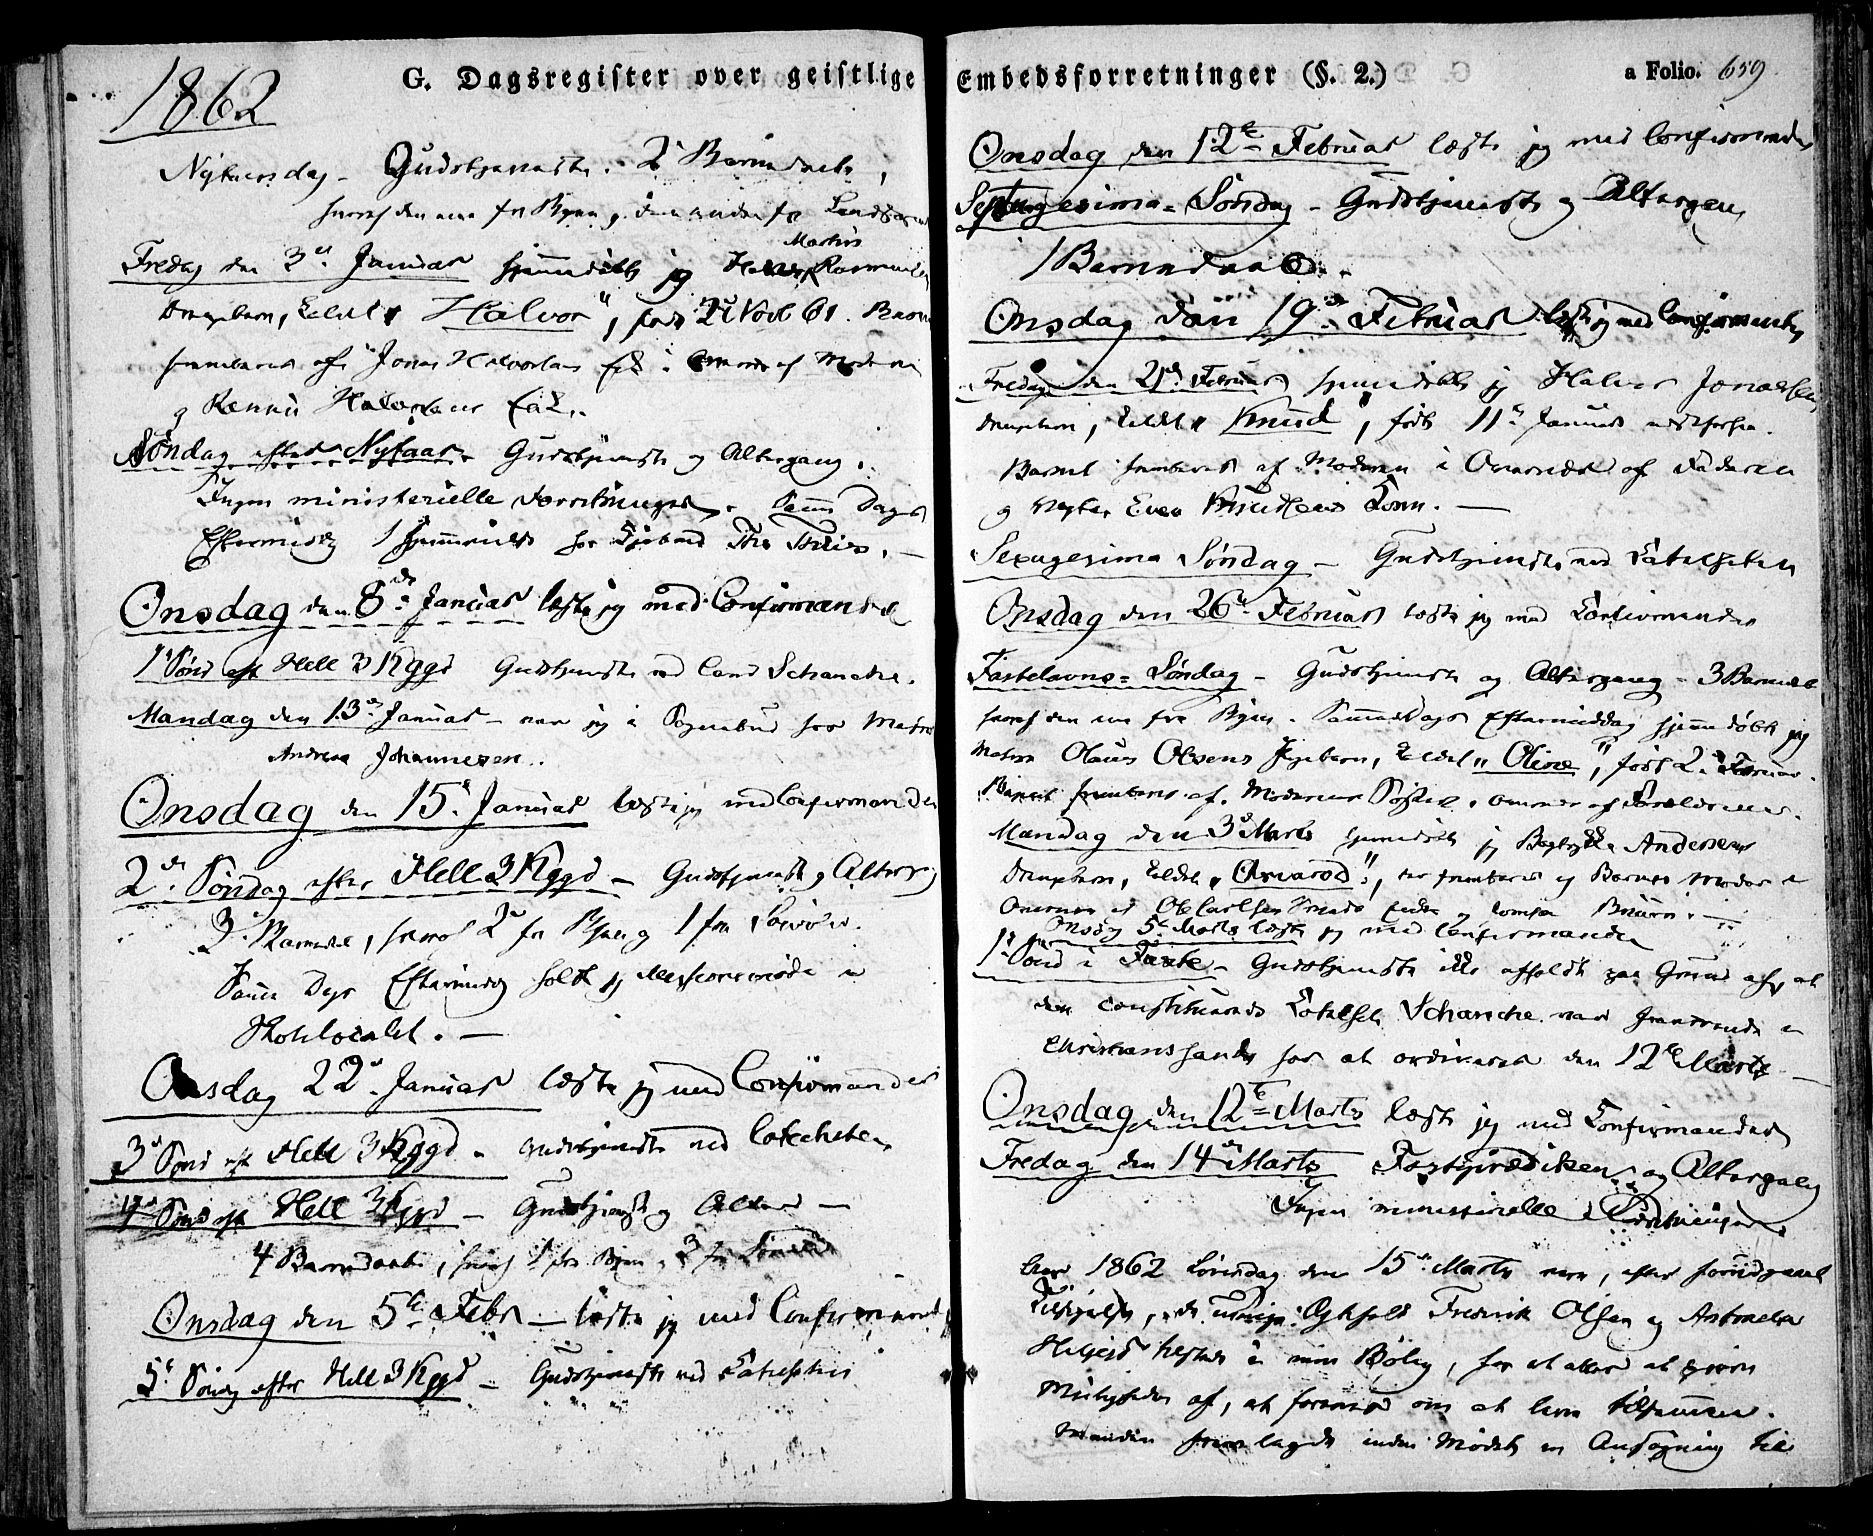 1862
G. Dagsregister over geistlige
Nytaarsdag - Gudstjeneste. 2 Barnedaab,
hvoraf den ene fra Byen, den anden fra Landsognet
Martin
Fredag den 3d Januar hjemmedøbte jeg Rasmussens
Drengebarn, kaldet "Halvor", født 24 Novb 61. Barnet
frembaaret af Jonas Halvorsens af Moderen
og Halvorsens
Søndag efter Nytaar. Gudstjeneste og Altergang.
Ingen ministerielle Forretninger. Samme Dags
Eftermiddag 1
Onsdag den 8de Januar læste jeg med Confirmander
1ste Sønd eft Hell 3 Kggd Gudstjeneste ved Cand Schanche.
Mandag den 13de Januar - var jeg i Sognebud hos Matros
Andreas Johannesen.
Onsdag den 15de Januar læste jeg med Confirmander
2den Søndag efter Hell 3 Kggd - Gudstjeneste og Altergang
3 Barnedaab, hvoraf 2 fra Byen og 1 fra
Samme Dags Eftermiddag holdt jeg Missionsmøde i
Skolelocalet. -
Onsdag 22d Januar læste jeg med Confirmander
3die Sønd eft Hell 3 Kggd - Gudstjeneste ved Catecheten
4de Sønd eft Hell 3 Kggd - Gudstjeneste og Alterg -
4 Barnedaab, hvoraf 1 fra Byen, 3 fra
Onsdag den 5te Febr - læste jeg med Confirmander
5te Søndag efter Hell 3 Kggd - Gudstjeneste ved Catecheten
Embedsforretninger (§. 2.)
a Folio. 659
Onsdag den 12te Februar læste jeg med Confirmander
Septuagesima-Søndag - Gudstjeneste og Altergang
1 Barnedaab.
Onsdag den 19de Februar læste jeg med Confirmander
Fredag den 21de Februar hjemmedøbte jeg Halvor Jonassens
Drengebarn, kaldet "Knud", født 11te Januar næstforhen.
Barnet frembaaret af Moderen i Overvær af Faderen
og Even Knudsens Kone. -
Sexagesima Søndag - Gudstjeneste ved Catecheten
Onsdag den 26de Februar læste jeg med Confirmander
Fastelavns-Søndag - Gudstjeneste og Altergang - 3 Barnedaab
hvoraf den ene fra Byen. Sammedags Eftermiddag hjemmedøbte jeg
Matros Olaus Olsens Pigebarn, kaldet "Oline", født 2 Februar.
Barnet frembaaret af Moderens Søster, Overvær af Forældrene.
Mandag den 3die Marts hjemmedøbte jeg Bogtrykker Andersens
Drengebarn, kaldet, frembaaret af Barnets Moder i
Overvær af Ole Carlsen
Onsdag 5te Marts læste jeg med Confirmander
1ste Sønd i Faste - Gudstjeneste ikke afholdt paa Grund af, at
den constituerede Catechet Schanche var fraværende i
Christianssand for at ordineres den 12te Marts -
Onsdag den 12te Marts læste jeg med Confirmander
Fredag den 14de Marts Fasteprædiken og Altergang
Ingen ministerielle Forretninger.
Aar 1862 Løverdag den 15de Marts vare, efter foregaaende
Tilsigelse, Opholds Fredrik Olsen og Antonetta
i min Bolig, for at at gjøres
af, at forenes om at leve tilsammen.
Manden fremlagde under Mødet en Ansøgning til